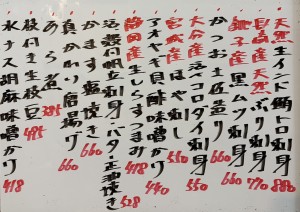 天然生インド鮪トロ刺身 880
長崎産天然ぶり刺身 770
銚子産黒ムツ刺身 660
かつお土佐造り
大分産活コロダイ刺身 550
宮城産ほや刺し 550
アオヤギ貝酢味噌かけ 440
静岡産生しらすつまみ 418
活殻付帆立刺身・バター・正油焼き 528
かます塩焼き 660
真かわり唐揚げ 660
あら煮 385
枝付き生枝豆 485
水ナス胡麻味噌かけ 418